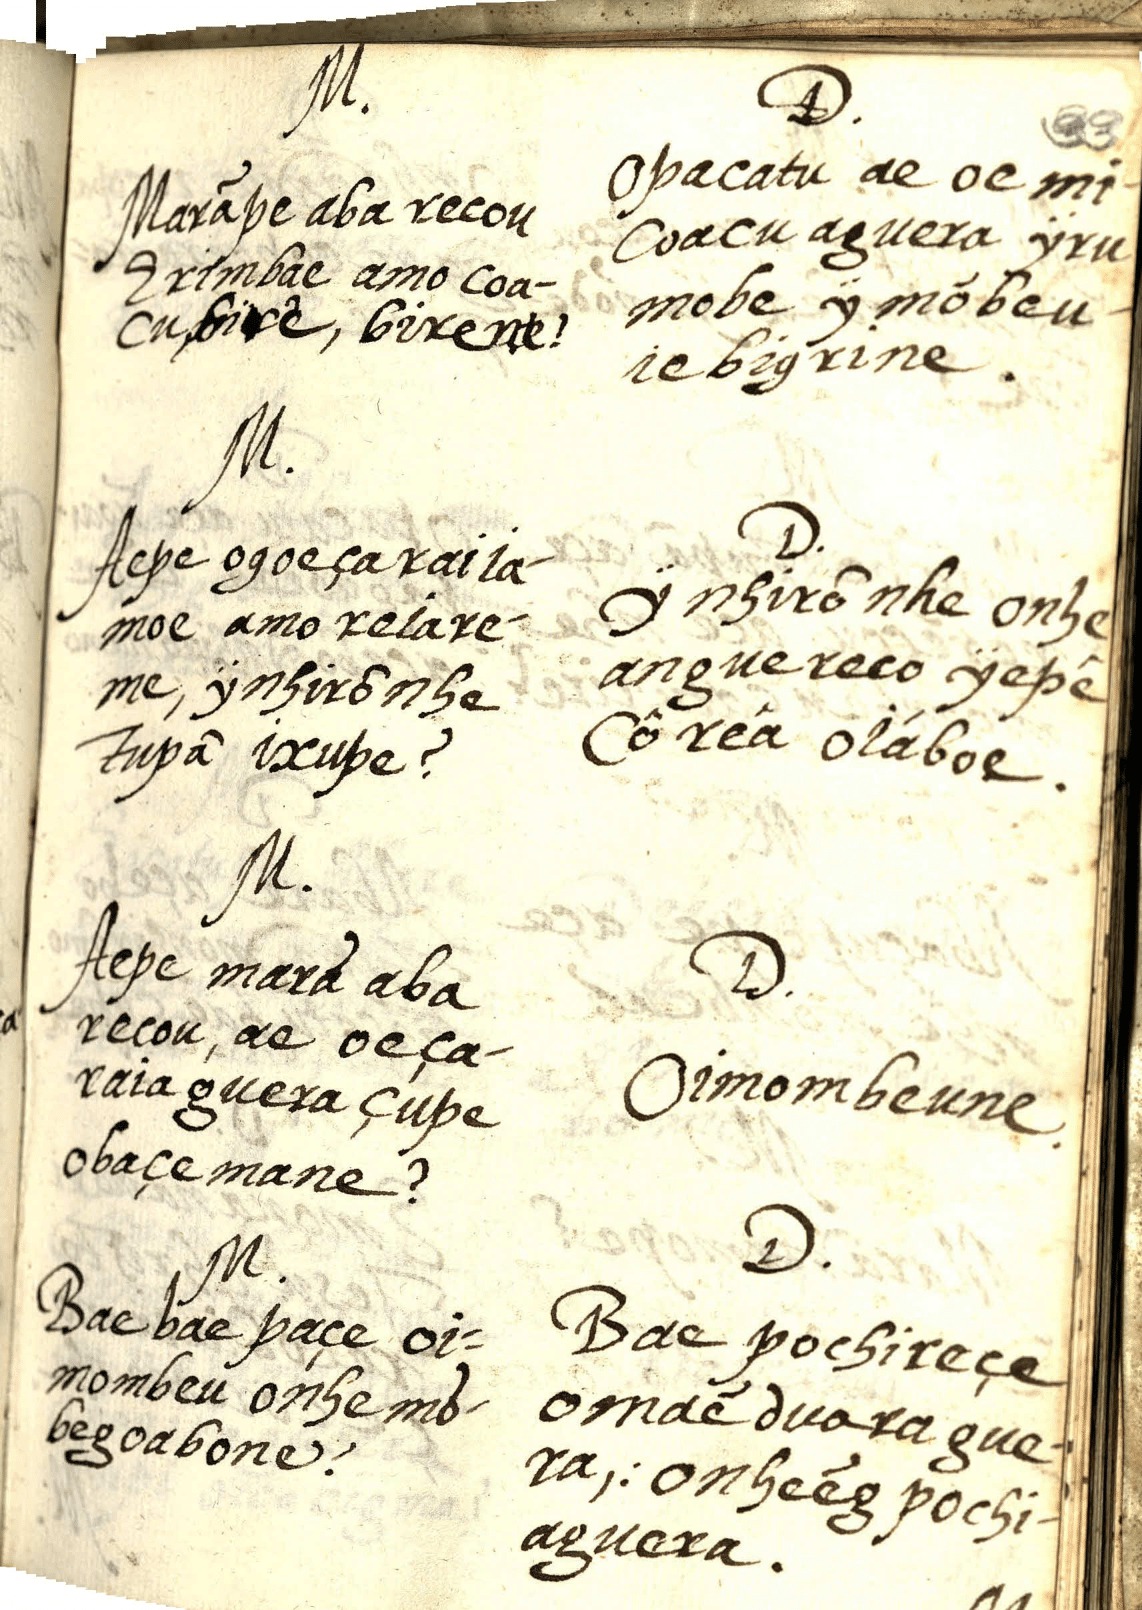 M.
Marãpe aba recou
Erimbae amo coa-
cu, birẽ, birene?
D.
Opacatu ae oe mi-
Coacu aguera ÿru
mobe ÿ mõbeu-
ie bigrine.
M.
Aepe ogoeçarai ia-
moe amo reiare-
me, ÿnhirõ nhe
Tupã ixupe?
D.
Ÿ nhirõ nhe onhe
anguereco ÿepê
Cô réa oiáboe.
M.
Aepe marã aba
recou, ae oeça-
raia guera çupe
obaçemane?
D.
Oimombeune.
M.
Bae bae paçe oi-
mombeu onhe mõ-
begoabone?
D.
Bae pochireçe
omaẽ duara gue-
ra,: onheẽg pochi-
aguera.